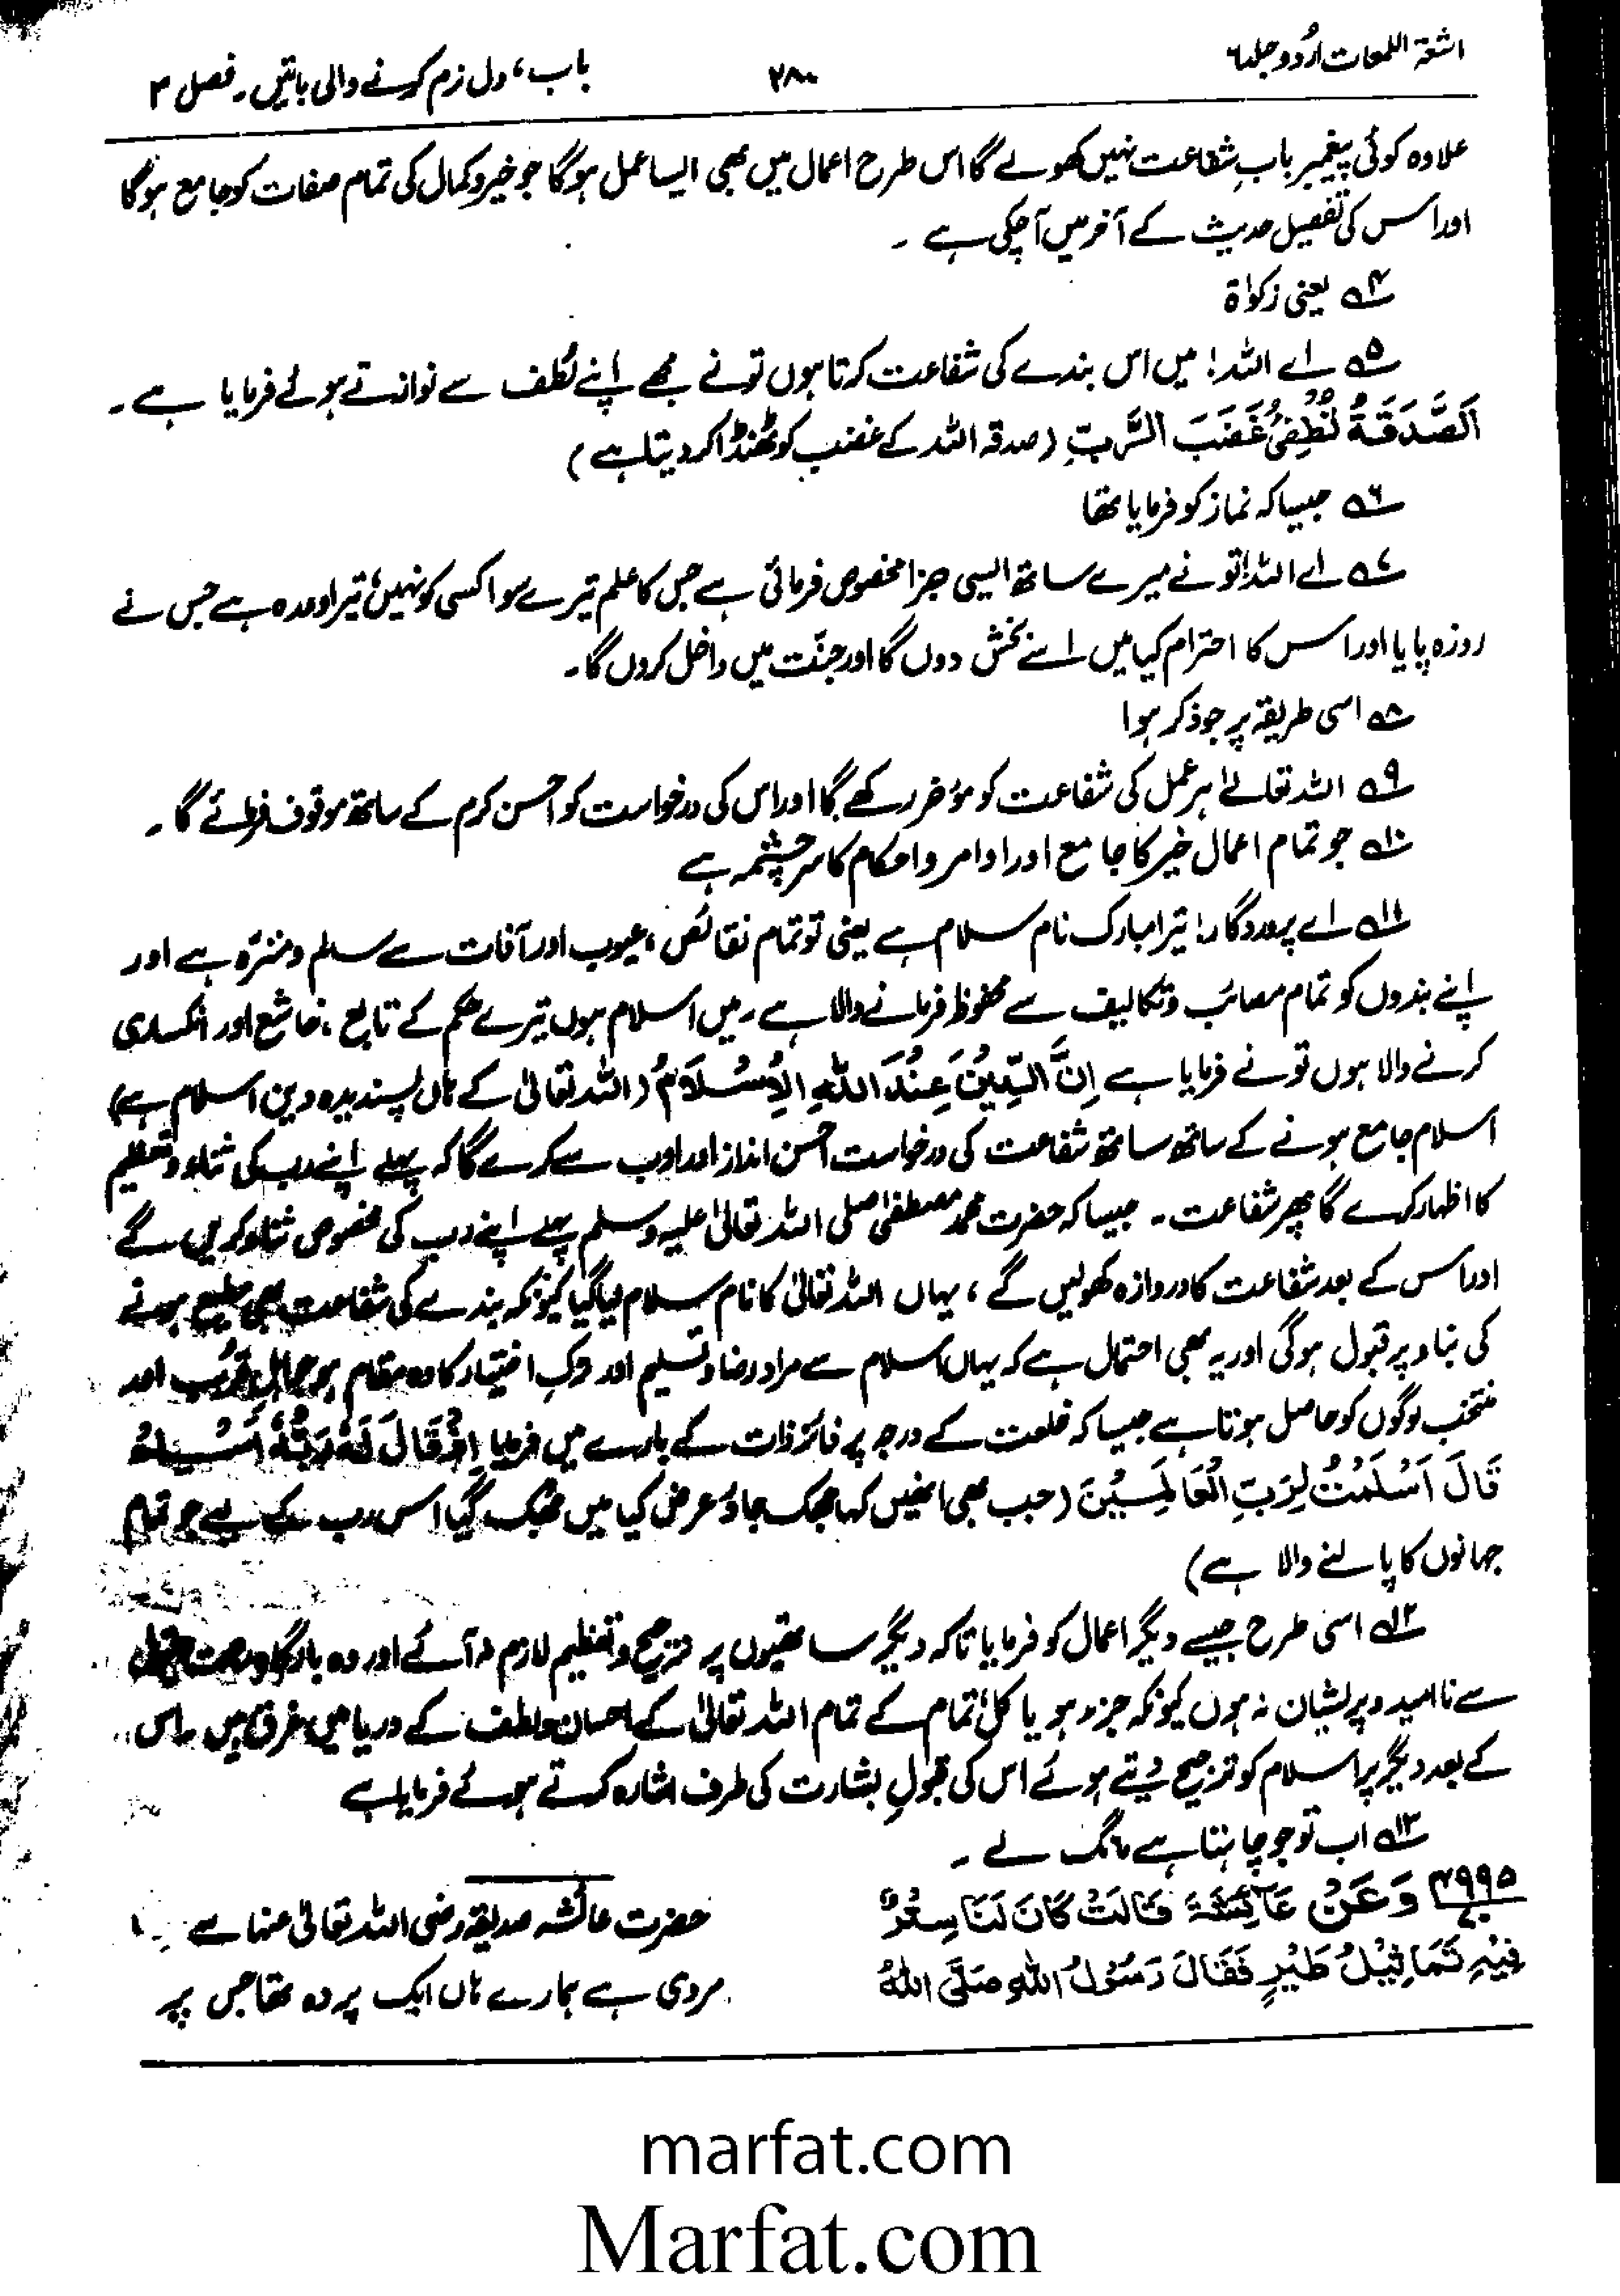 اشعۃ اللمعات اردو جلد ٦
٢٨٠
باب، دل نرم کرنے والی باتیں۔ فصل ٣
علاوہ کوئی پیغمبر بابِ شفاعت نہیں کھولے گا اس طرح اعمال میں بھی ایسا عمل ہوگا جو خیر و کمال کی تمام صفات کو جامع ہوگا
اور اس کی تفصیل حدیث کے آخر میں آچکی ہے ۔
۴؎ یعنی زکوٰۃ
۵؎ اے اللہ! میں اس بندے کی شفاعت کرتا ہوں تو نے مجھے اپنے لطف سے نوازتے ہوئے فرمایا ہے ۔
اَلصَّدَقَةُ تُطْفِئُ غَضَبَ الرَّبِّ (صدقہ اللہ کے غضب کو ٹھنڈا کر دیتا ہے)
۶؎ جیسا کہ نماز کو فرمایا تھا
۷؎ اے اللہ! تو نے میرے ساتھ ایسی جزا مخصوص فرمائی ہے جس کا علم تیرے سوا کسی کو نہیں، تیرا وعدہ ہے جس نے
روزہ پایا اور اس کا احترام کیا میں اسے بخش دوں گا اور جنّت میں داخل کروں گا۔
۸؎ اسی طریقہ پر جو ذکر ہوا
۹؎ اللہ تعالےٰ ہر عمل کی شفاعت کو مؤخر رکھے گا اور اس کی درخواست کو احسن کرم کے ساتھ موقوف فرمائے گا ۔
۱۰؎ جو تمام اعمال خیر کا جامع اور اوامر و احکام کا سرچشمہ ہے
۱۱؎ اے پروردگار! تیرا مبارک نام سلام ہے یعنی تو تمام نقائص، عیوب اور آفات سے سالم و منزّہ ہے اور
اپنے بندوں کو تمام مصائب و تکالیف سے محفوظ فرمانے والا ہے ۔ میں اسلام ہوں تیرے حکم کے تابع، خاشع اور انکساری
کرنے والا ہوں تو نے فرمایا ہے اِنَّ الدِّيْنَ عِنْدَ اللهِ الْاِسْلَامُ (اللہ تعالیٰ کے ہاں پسندیدہ دین اسلام ہے)
اسلام جامع ہونے کے ساتھ ساتھ شفاعت کی درخواست احسن انداز اور ادب سے کرے گا کہ پہلے اپنے رب کی ثناء و تعظیم
کا اظہار کرے گا پھر شفاعت ۔ جیسا کہ حضرت محمد مصطفیٰ صلی اللہ تعالیٰ علیہ وسلم پہلے اپنے رب کی مخصوص ثناء کریں گے
اور اس کے بعد شفاعت کا دروازہ کھولیں گے، یہاں اللہ تعالیٰ کا نام سلام لیا گیا کیونکہ بندے کی شفاعت بھی مطیع ہونے
کی بناد پر قبول ہوگی اور یہ بھی احتمال ہے کہ یہاں اسلام سے مراد رضا و تسلیم اور ترکِ اختیار کا وہ مقام ہو جو اہلِ قرب اور
منتخب لوگوں کو حاصل ہوتا ہے جیسا کہ خلعت کے درجہ پر فائز ذات کے بارے میں فرمایا اِذْ قَالَ لَهُ رَبُّهُ اَسْلِمْ
قَالَ اَسْلَمْتُ لِرَبِّ الْعَالَمِيْنَ (جب بھی انھیں کہا جھک جاؤ عرض کیا میں جھک گیا اس رب کے لیے جو تمام
جہانوں کا پالنے والا ہے)
۱۲؎ اسی طرح جیسے دیگر اعمال کو فرمایا تاکہ دیگر ساتھیوں پر ترجیح و تعظیم لازم نہ آئے اور وہ بارگاہ
سے ناامید و پریشان نہ ہوں کیونکہ جزء ہو یا کل تمام کے تمام اللہ تعالیٰ کے احسان و لطف کے دریا میں غرق ہیں ۔ اس
کے بعد دیگر پر اسلام کو ترجیح دیتے ہوئے اس کی قبولِ بشارت کی طرف اشارہ کرتے ہوئے فرمایا ہے
۱۳؎ اب تو جو چاہتا ہے مانگ لے ۔
۴۹۹۵/۷۰ وَعَنْ عَائِشَةَ قَالَتْ كَانَ لَنَا سِتْرٌ
فِيْهِ تَمَاثِيْلُ طَيْرٍ فَقَالَ رَسُوْلُ اللهِ صَلَّى اللهُ
حضرت عائشہ صدیقہ رضی اللہ تعالیٰ عنہا سے
مروی ہے ہمارے ہاں ایک پردہ تھا جس پر
marfat.com
Marfat.com